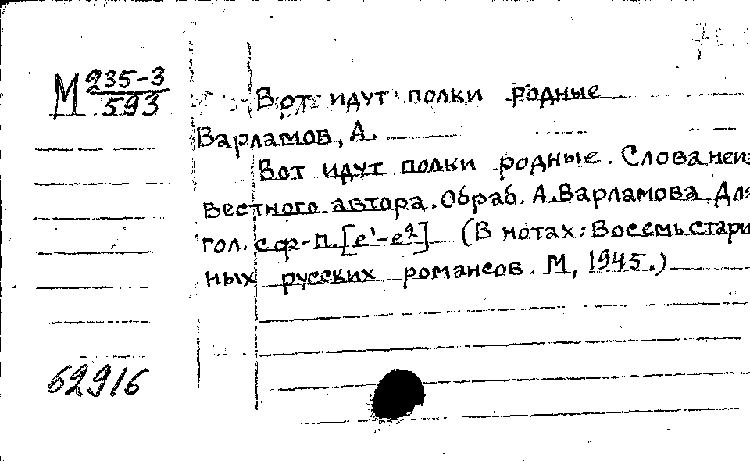 М 235-3
593
Вот идут полки родные
Варламов, А.
Вот идут полки родные. Слова неиз
вестного автора. Обраб. А. Варламова. Для
гол. с ф-п. [e¹-e²] (В нотах: Восемь стари
ных русских романсов. М, 1945.)
62916